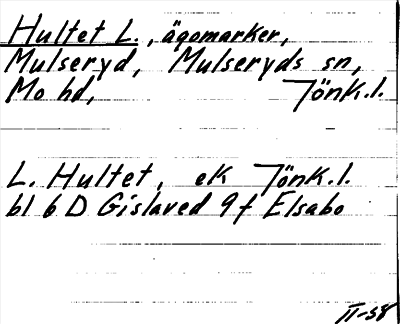 Hultet L., ägomarker,
Mulseryd, Mulseryds sn,
Mo hd, Jönk.l.
L. Hultet, ek Jönk.l.
bl 6 D Gislaved 9 f Elsabo
II-58